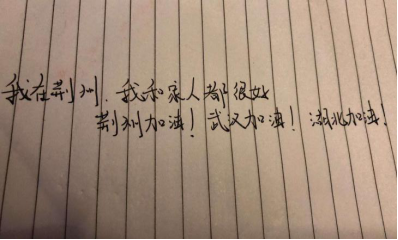 我在荆州,我和家人都很好
荆州加油!武汉加油!湖北加油!